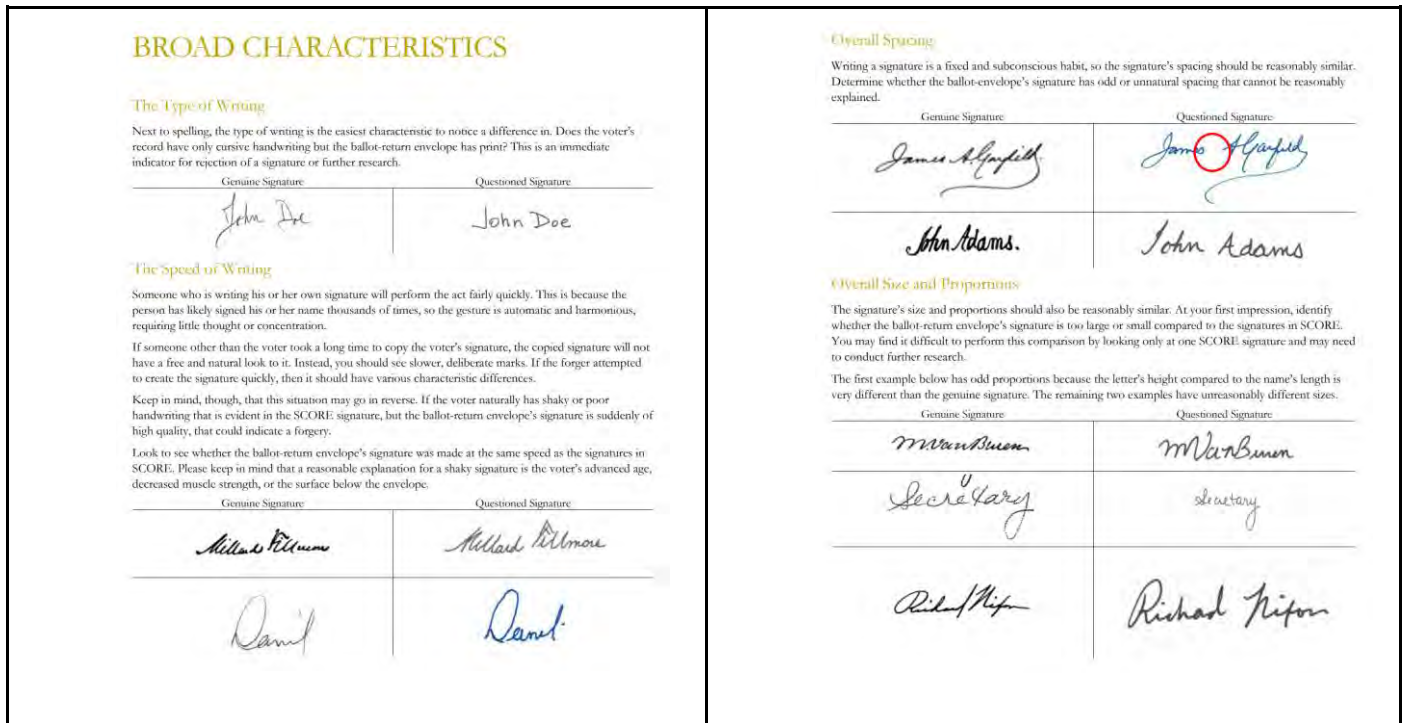 BROAD CHARACTERISTICS
The Type of Writing
Next to spelling, the type of writing is the easiest characteristic to notice a difference in. Does the voter's
record have only cursive handwriting but the ballot-return envelope has print? This is an immediate
indicator for rejection of a signature or further research.
Genuine Signature Questioned Signature
John Doe John Doe
The Speed of Writing
Someone who is writing his or her own signature will perform the act fairly quickly. This is because the
person has likely signed his or her name thousands of times, so the gesture is automatic and harmonious,
requiring little thought or concentration.
If someone other than the voter took a long time to copy the voter's signature, the copied signature will not
have a free and natural look to it. Instead, you should see slower, deliberate marks. If the forger attempted
to create the signature quickly, then it should have various characteristic differences.
Keep in mind, though, that this situation may go in reverse. If the voter naturally has shaky or poor
handwriting that is evident in the SCORE signature, but the ballot-return envelope's signature is suddenly of
high quality, that could indicate a forgery.
Look to see whether the ballot-return envelope's signature was made at the same speed as the signatures in
SCORE. Please keep in mind that a reasonable explanation for a shaky signature is the voter's advanced age,
decreased muscle strength, or the surface below the envelope.
Genuine Signature Questioned Signature
Millard Fillmore Millard Fillmore
Overall Spacing
Writing a signature is a fixed and subconscious habit, so the signature's spacing should be reasonably similar.
Determine whether the ballot-envelope's signature has odd or unnatural spacing that cannot be reasonably
explained.
Genuine Signature Questioned Signature
James A. Garfield James A Garfield
John Adams. John Adams
Overall Size and Proportions
The signature's size and proportions should also be reasonably similar. At your first impression, identify
whether the ballot-return envelope's signature is too large or small compared to the signatures in SCORE.
You may find it difficult to perform this comparison by looking only at one SCORE signature and may need
to conduct further research.
The first example below has odd proportions because the letter's height compared to the name's length is
very different than the genuine signature. The remaining two examples have unreasonably different sizes.
Genuine Signature Questioned Signature
MVanBuren MVanBuren
Secretary Secretary
Richard Nixon Richard Nixon